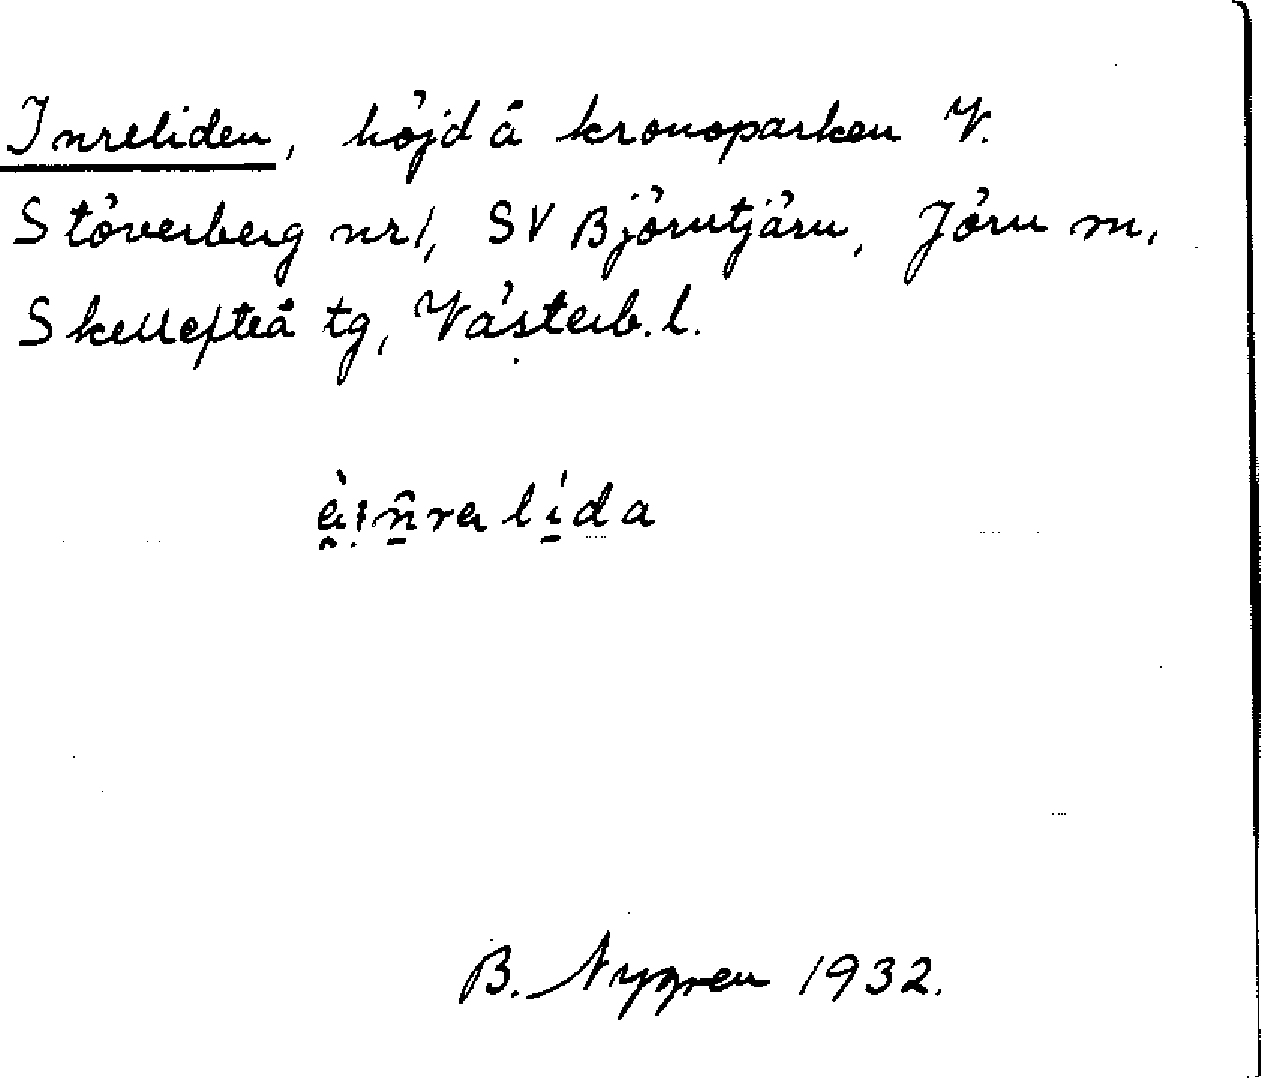 Inreliden, höjd å kronoparken V.
Stöverberg nr 1, SV Björntjärn, Jörn sn,
Skellefteå tg, Västerb. l.
lida
B. Nygren 1932.